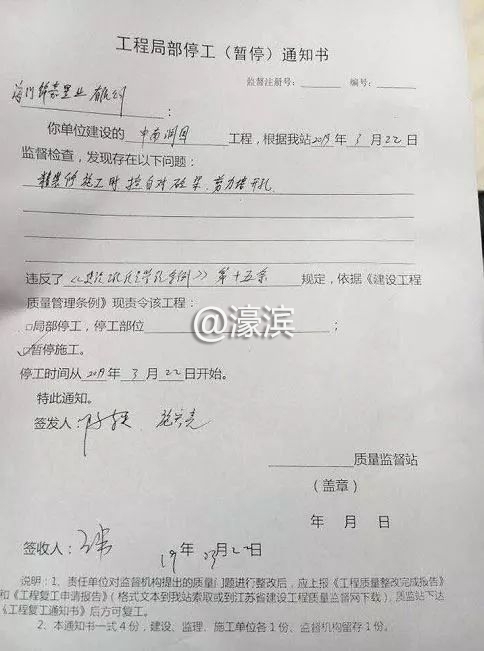 工程局部停工（暂停）通知书
监督注册号： 编号：
海门锦嘉置业有限公司：
你单位建设的 中南润园 工程，根据我站2019年3月22日
监督检查，发现存在以下问题：
精装修施工时擅自对砼梁、剪力墙开孔
违反了《建设工程质量管理条例》第十五条 规定，依据《建设工程
质量管理条例》现责令该工程：
□局部停工，停工部位 ；
☑暂停施工。
停工时间从2019年3月22日开始。
特此通知。
签发人：
质量监督站
（盖章）
年 月 日
签收人： 19年3月22日
说明：1、责任单位对监督机构提出的质量问题进行整改后，应上报《工程质量整改完成报告》
和《工程复工申请报告》（格式文本到我站索取或到江苏省建设工程质量监督网下载），质监站下达
《工程复工通知书》后方可复工。
2、本通知书一式4份，建设、监理、施工单位各1份、监督机构留存1份。
@濠滨